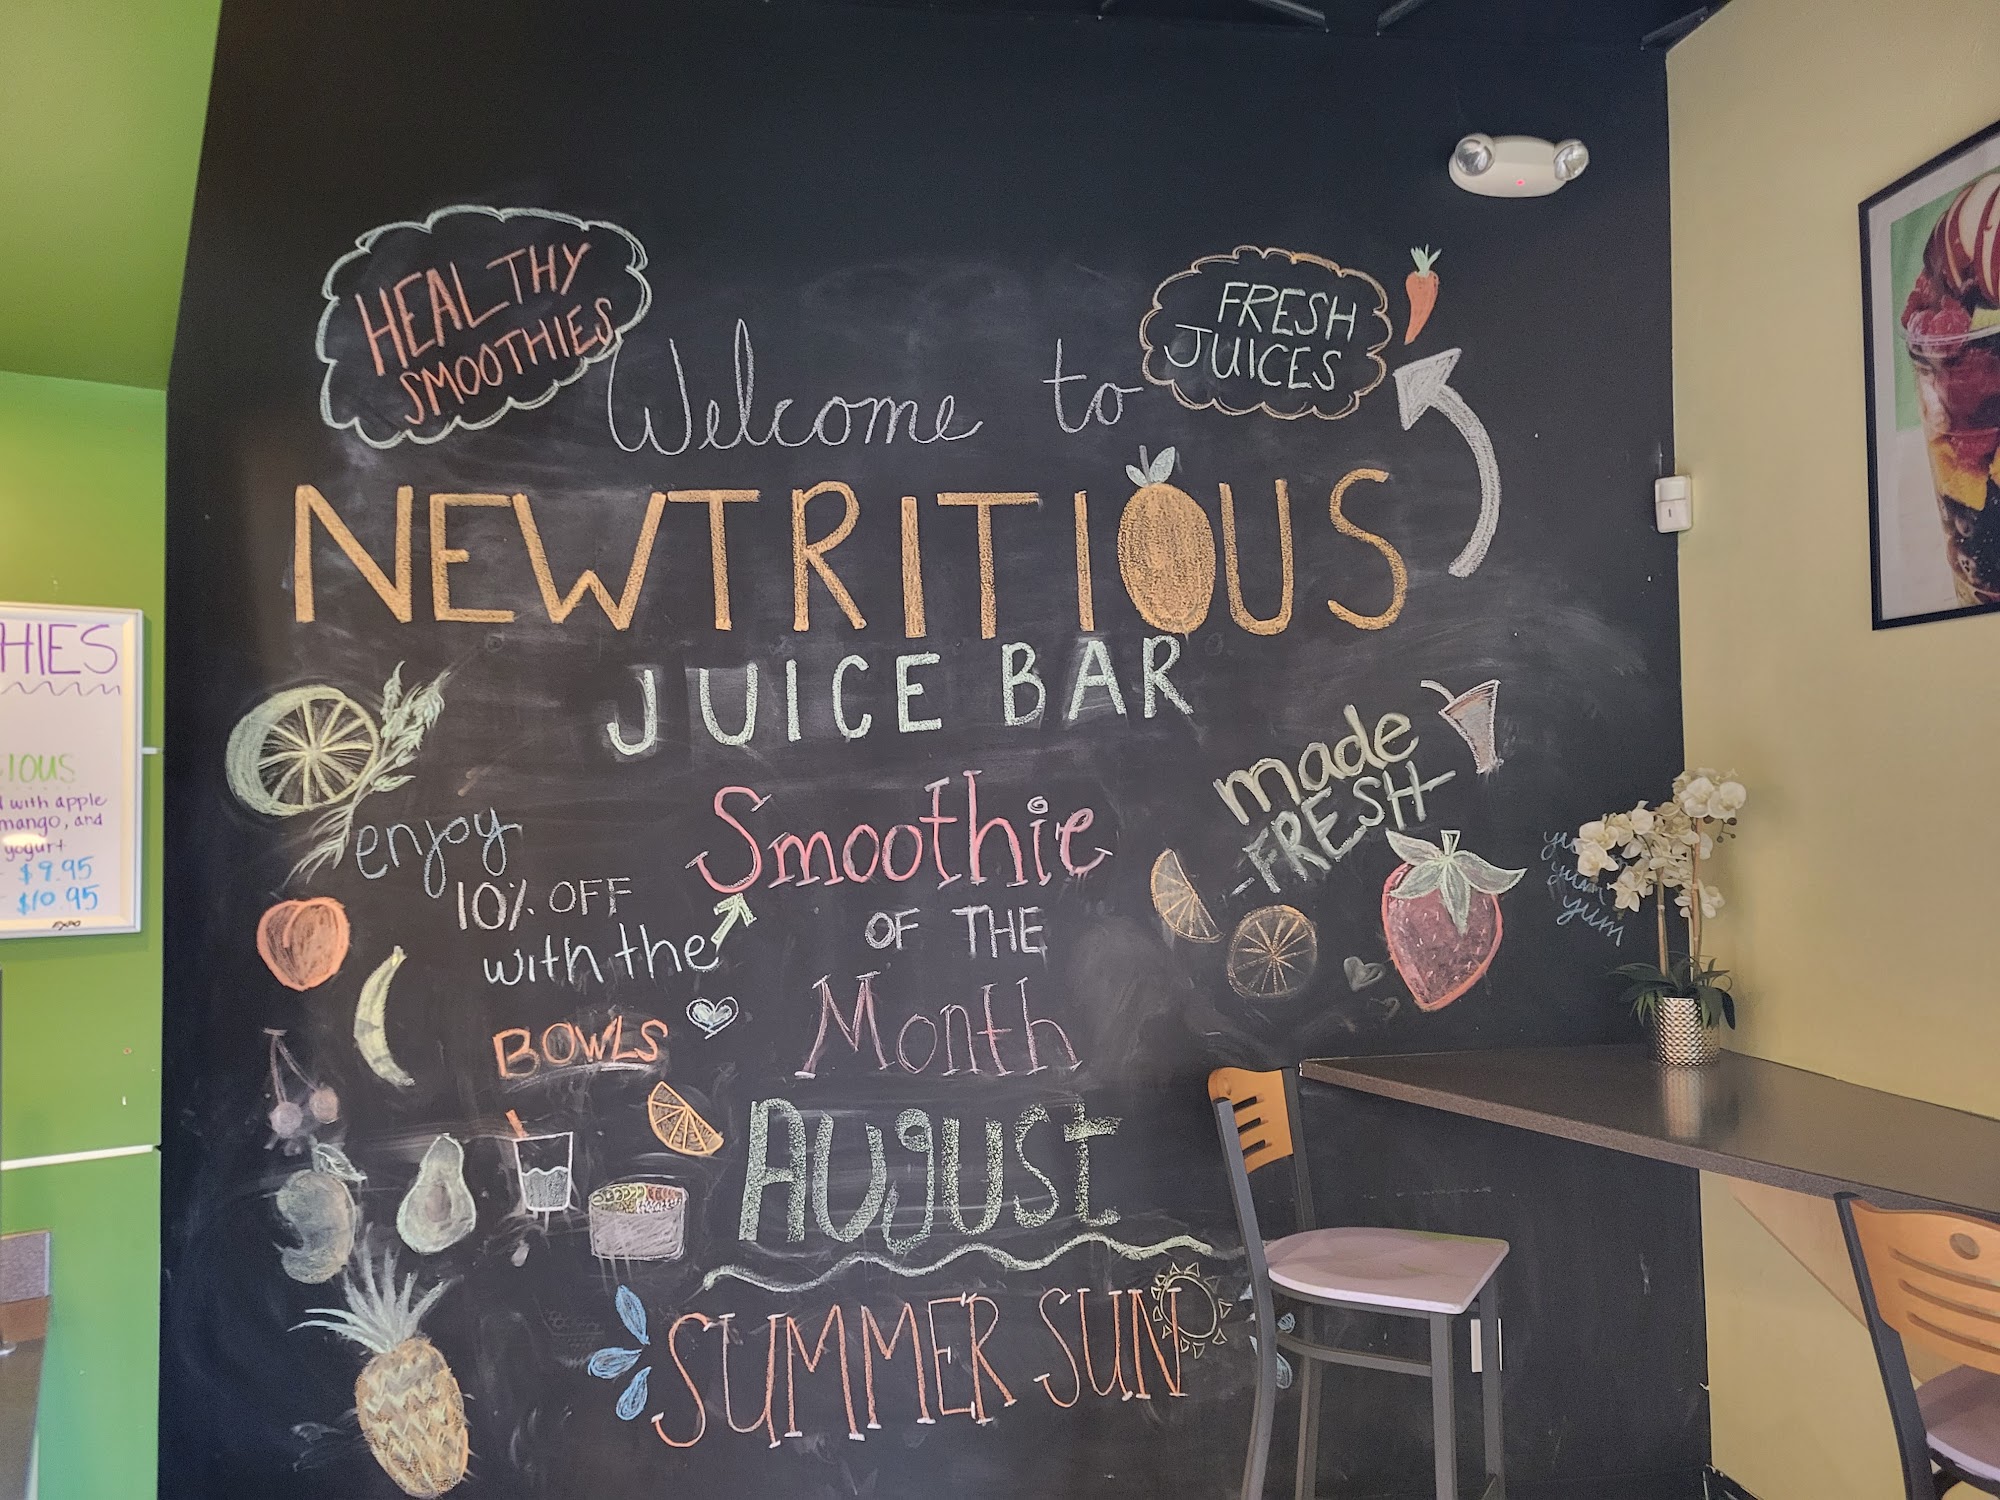 HEALTHY
SMOOTHIES
Welcome to
FRESH
JUICES
NEWTRITIOUS
JUICE BAR
made
-FRESH-
enjoy
10% OFF
with the
Smoothie
OF THE
Month
BOWLS
AUgUSt
SUMMER SUN
yum
yum
HIES
IOUS
with apple
mango, and
yogurt
$9.95
$10.95
EXPO